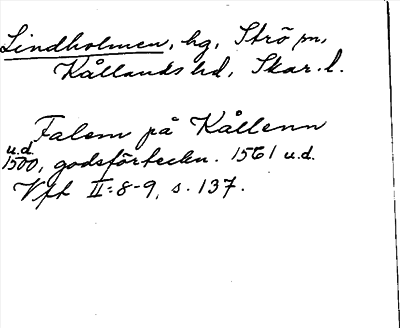 Lindholmen, hg, Strö sn,
Kållands hd, Skar. l.
Falem på Kållenn
u.d.
1500, godsförteckn. 1561 u.d.
Vft II:8-9, s. 137.